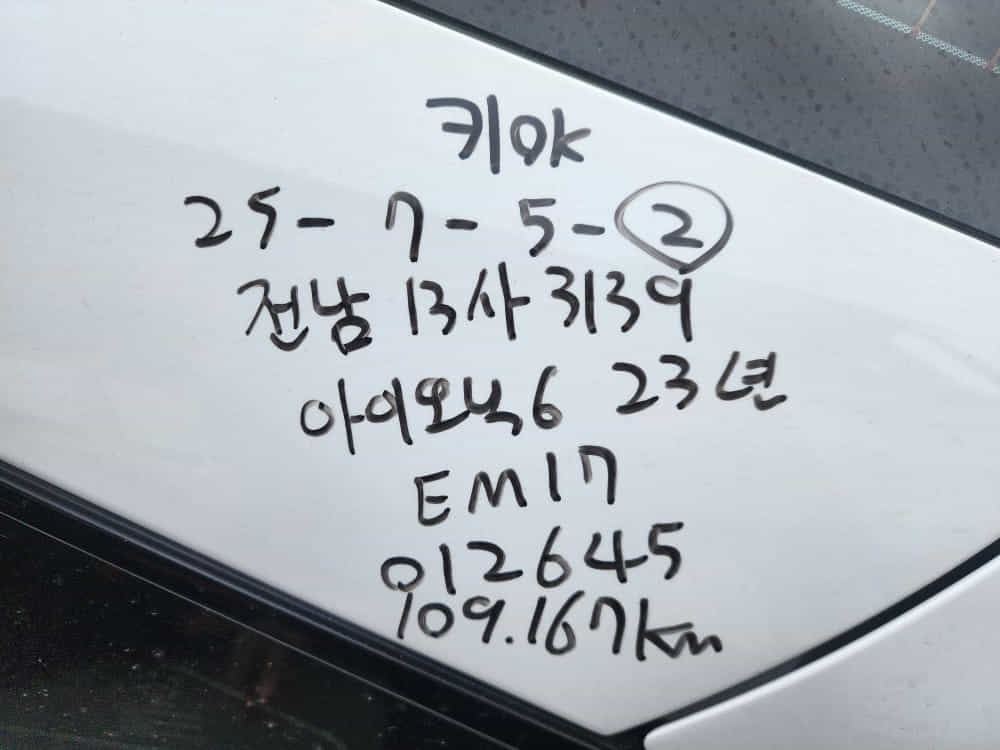 키ok
25-7-5-②
전남 13사 3139
아이오닉6 23년
EM17
012645
109.167km